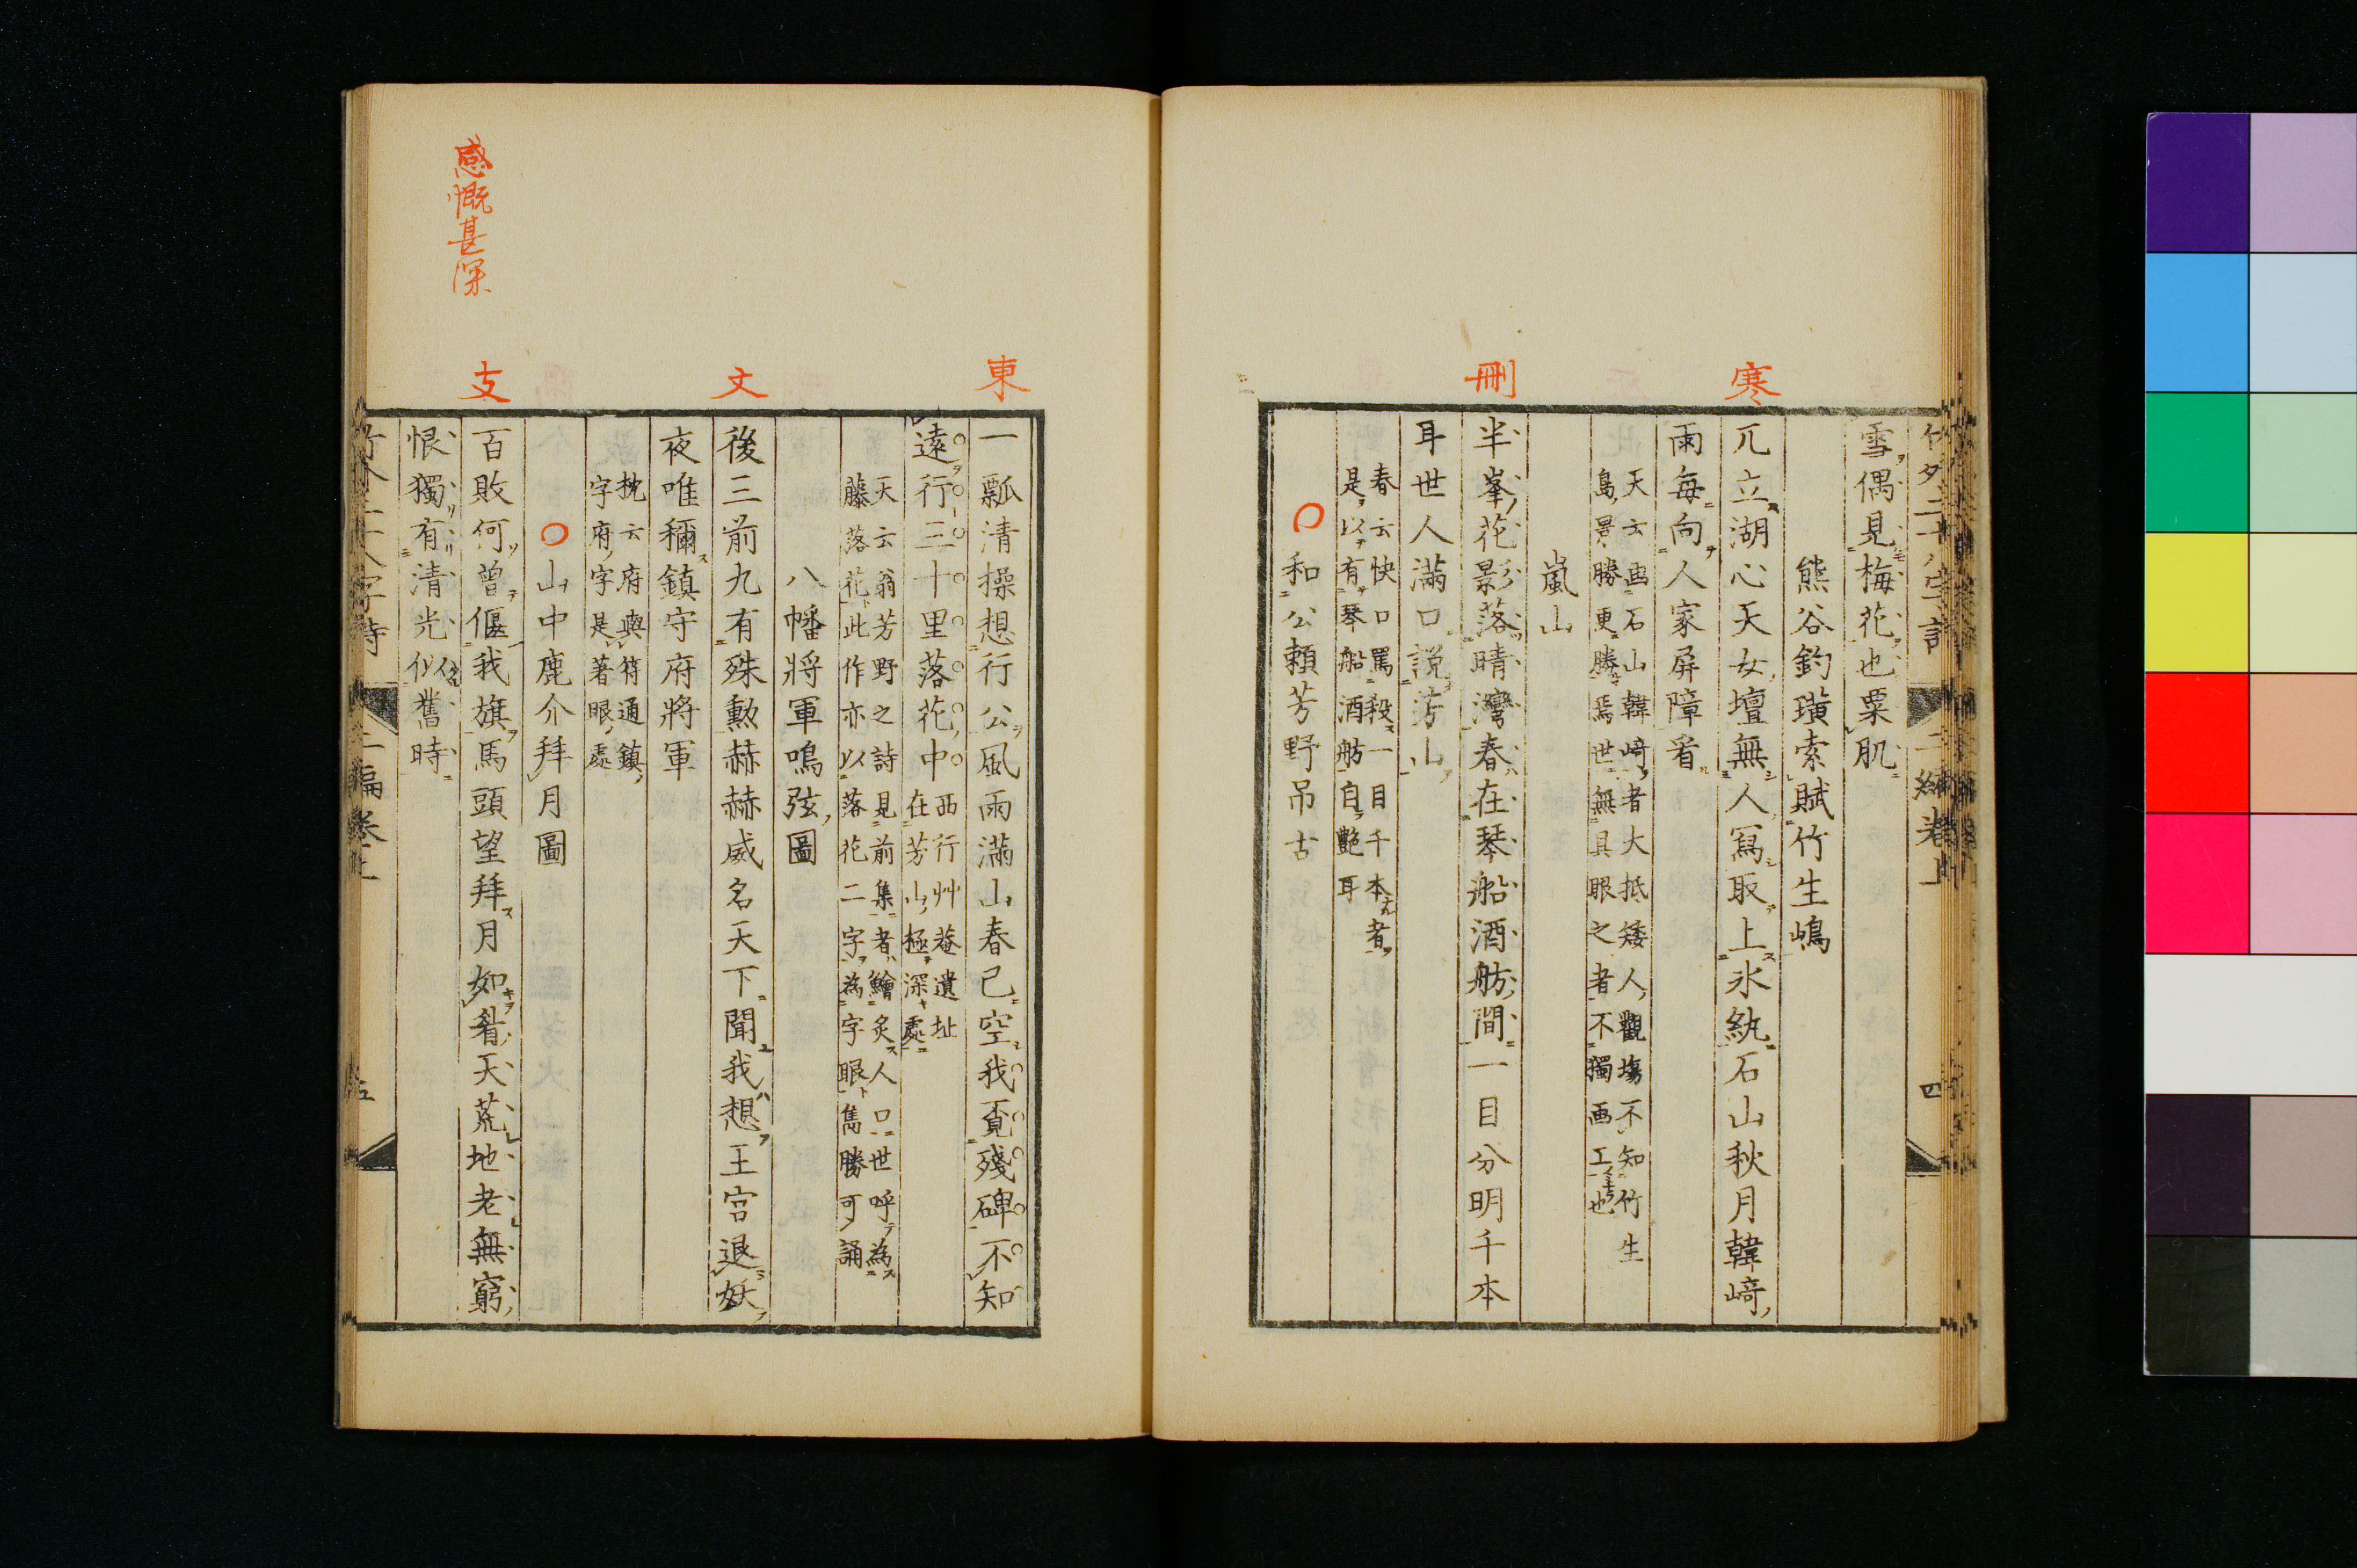 寒
刪
雪偶見梅花也粟肌
熊谷釣璜索賦竹生嶋
兀立湖心天女壇無人寫取上氷紈石山秋月韓﨑
雨每向人家屏障看
天云画石山韓﨑者大抵矮人觀塲不知竹生
島景勝更勝焉世無具眼之者不獨画工也
嵐山
半峯花影落晴灣春在琴船酒舫間一目分明千本
耳世人滿口説芳山
春云快口罵殺一目千本者
是以有琴船酒舫自艶耳
和公頼芳野吊古
四
東
文
支
感慨甚深
一瓢清操想行公風雨滿山春已空我覔殘碑不知
遠行三十里落花中
西行艸菴遺址
在芳山極深處
天云翁芳野之詩見前集者鱠炙人口世呼為
藤落花此作亦以落花二字為字眼雋勝可誦
八幡將軍鳴弦圖
後三前九有殊勲赫赫威名天下聞我想王宮退妖
夜唯稱鎮守府將軍
枕云府與符通鎮
字府字是著眼處
山中鹿介拜月圖
百敗何曾偃我旗馬頭望拜月如眉天荒地老無窮
恨獨有清光似舊時
二編卷上
五